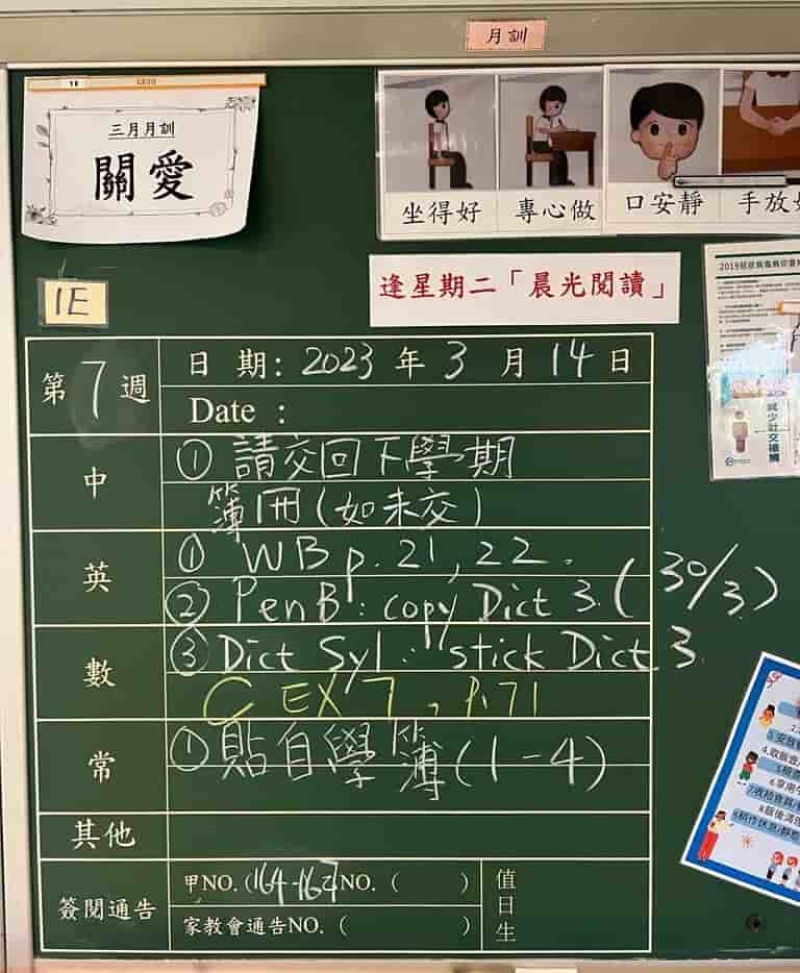 月訓
三月月訓
關愛
坐得好
專心做
口安靜
手放好
逢星期二「晨光閱讀」
1E
第7週
日期: 2023 年 3 月 14 日
Date :
中
① 請交回下學期
簿冊(如未交)
英
① WB p. 21, 22.
② PenB: copy Dict 3. (30/3)
③ Dict Syl: stick Dict 3.
數
C EX 7, P.71
常
① 貼自學簿(1-4)
其他
簽閱通告
甲NO. (164-167
NO. ( )
家教會通告NO. ( )
值日生
減少社交接觸